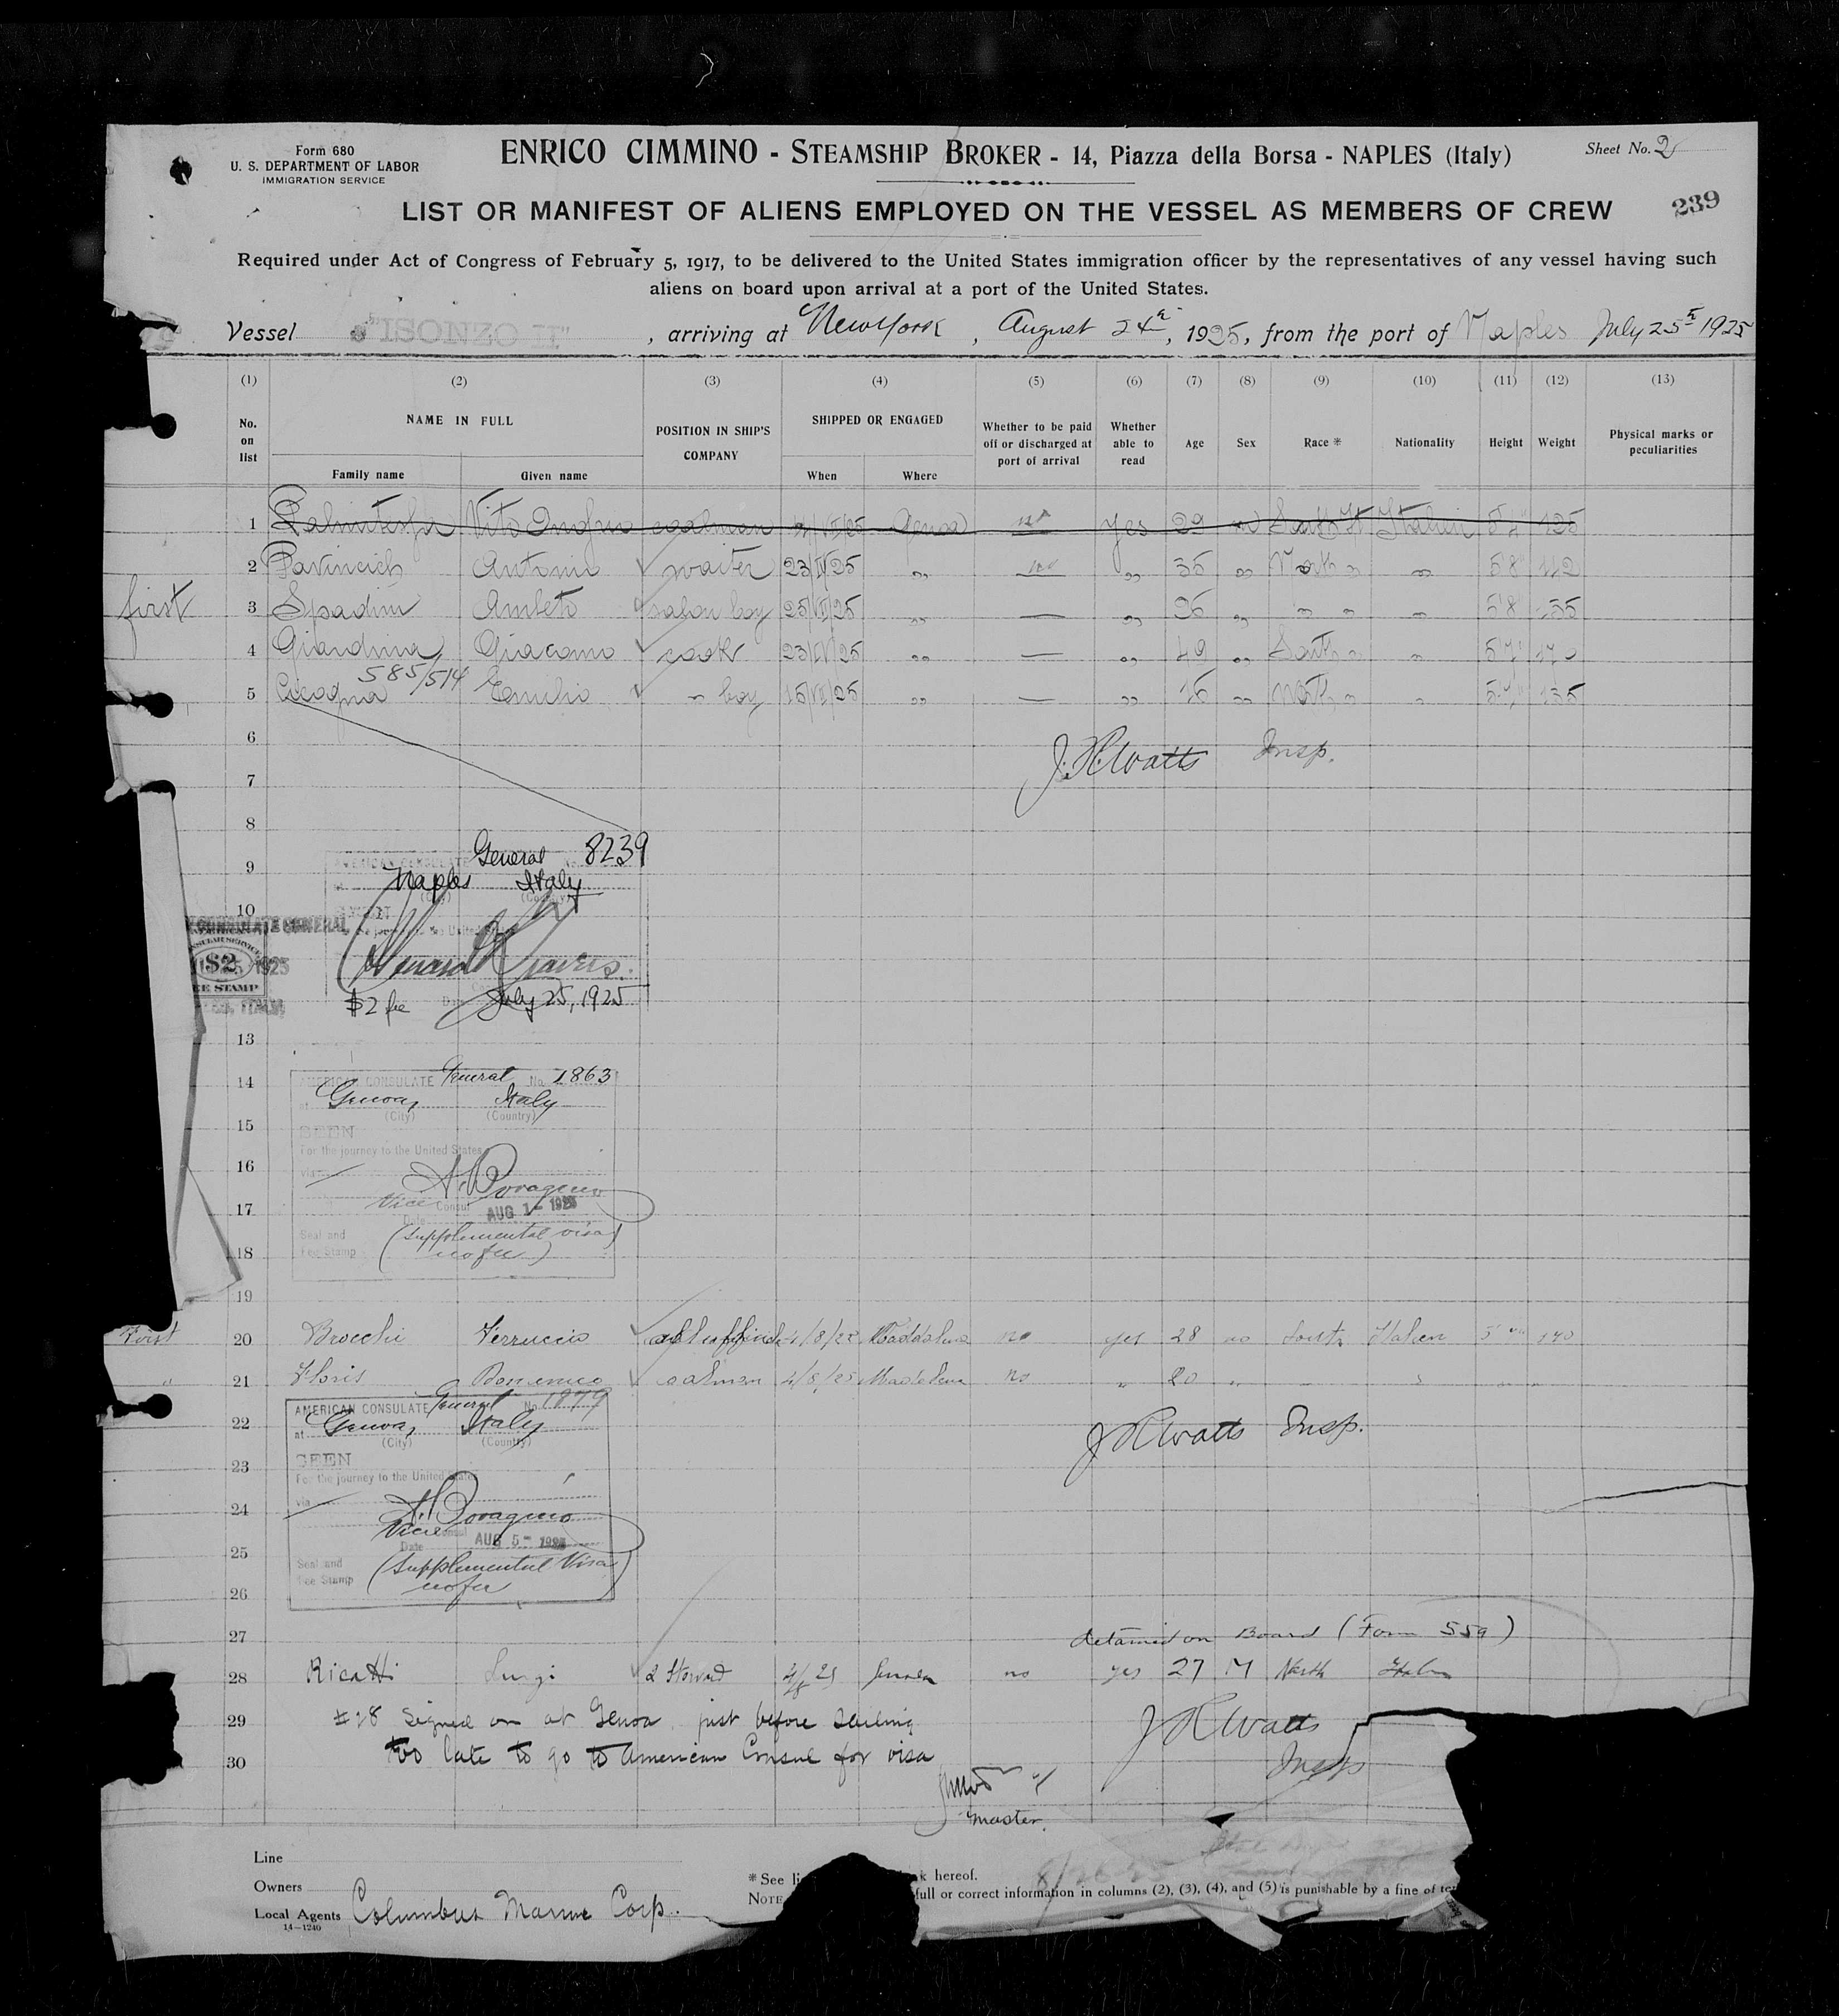 Form 680
U. S. DEPARTMENT OF LABOR
IMMIGRATION SERVICE
ENRICO CIMMINO - STEAMSHIP BROKER - 14, Piazza della Borsa - NAPLES (Italy)
Sheet No. 2
239
LIST OR MANIFEST OF ALIENS EMPLOYED ON THE VESSEL AS MEMBERS OF CREW
Required under Act of Congress of February 5, 1917, to be delivered to the United States immigration officer by the representatives of any vessel having such
aliens on board upon arrival at a port of the United States.
Vessel "ISONZO II", arriving at New York, August 24th, 1925, from the port of Naples July 25th 1925
(1) (2) (3) (4) (5) (6) (7) (8) (9) (10) (11) (12) (13)
No. on list NAME IN FULL POSITION IN SHIP'S COMPANY SHIPPED OR ENGAGED Whether to be paid off or discharged at port of arrival Whether able to read Age Sex Race * Nationality Height Weight Physical marks or peculiarities
Family name Given name When Where
1 Vito Onofrio coalman Genoa yes 29 South It Italian 125
2 Pavincich Antonio waiter 23/IV/25 „ „ 35 „ North „ „ 5'8" 112
first 3 Spadini Amleto salon boy 25/VI/25 „ — „ 26 „ „ „ „ 5'8" 155
4 Giardina Giacomo cook 23/IV/25 „ — „ 49 „ South „ „ 5'7" 170
585/514
5 Cicogna Emilio „ boy 15/VII/25 „ — „ 16 „ North „ „ 135
6
J. H. Watts Insp.
7
8
AMERICAN CONSULATE General No. 8239
9
at Naples Italy
(City) (Country)
10
SEEN
CONSULATE GENERAL
For the journey to the United States
AMERICAN CONSULAR SERVICE
$2
FEE STAMP
1925
ITALY
$2 fee Date July 25, 1925
13
14 AMERICAN CONSULATE General No. 1863
at Genoa, Italy
(City) (Country)
15 SEEN
For the journey to the United States
16 via
A. Boragino
17 Vice Consul
Date AUG 1 - 1925
Seal and Fee Stamp (supplemental visa
18 no fee)
19
First 20 Brocchi Ferruccio 4/8/25 Maddalena no yes 28 South Italian 170
„ 21 Floris Domenico coalman 4/8/25 Maddalena no „ 20 „
AMERICAN CONSULATE General No. 1879
22 at Genoa, Italy
(City) (Country)
J H Watts Insp.
23 SEEN
For the journey to the United States
via
24 A. Boragino
Vice Consul
Date AUG 5 - 1925
25
Seal and Fee Stamp (supplemental visa
no fee
26
27 detained on Board (Form 559)
28 Ricatti Luigi 2 Steward 4/8 25 Genoa no yes 27 M North Italn
29 #28 signed on at Genoa, just before sailing
J H Watts
30 too late to go to American Consul for visa
Insp
master.
Line
Owners
Local Agents Columbus Marine Corp.
14—1240
* See li k hereof.
NOTE full or correct information in columns (2), (3), (4), and (5) is punishable by a fine of